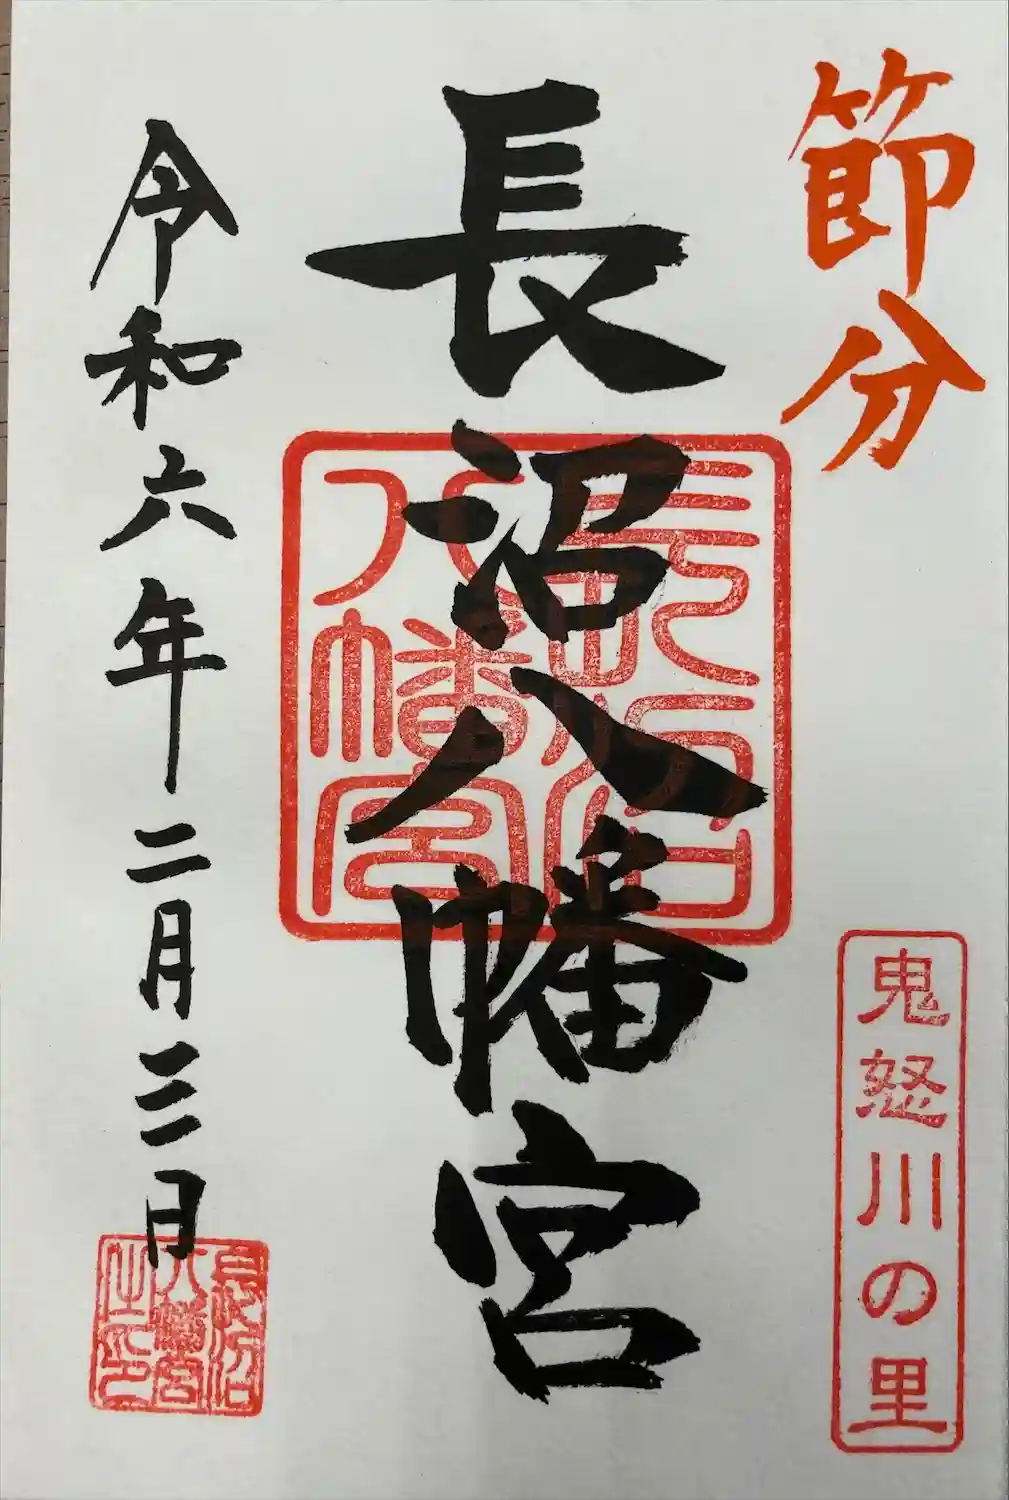 節分
鬼怒川の里
長沼八幡宮
長沼八幡宮
令和六年二月三日
長沼八幡宮之印